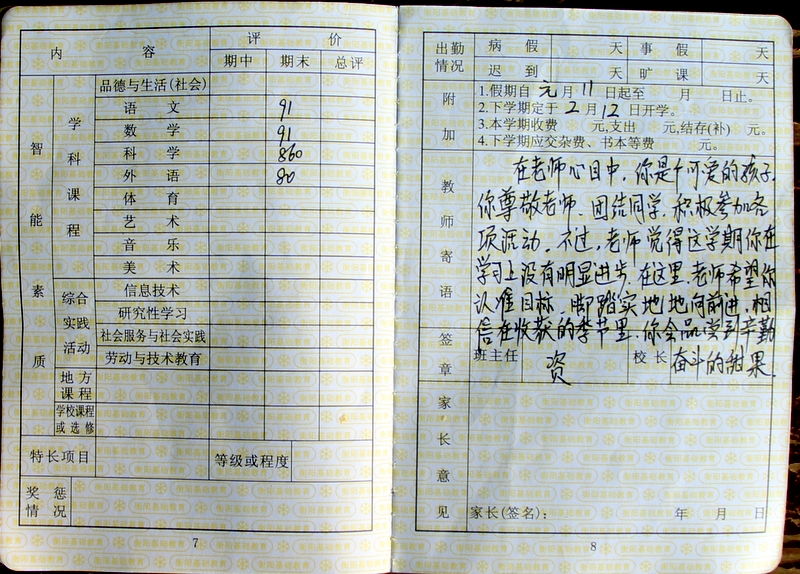 内 容 评 价
期中 期末 总评
智能素质
学科课程
品德与生活(社会)
语 文 91
数 学 91
科 学
外 语 80
体 育
艺 术
音 乐
美 术
综合实践活动
信息技术
研究性学习
社会服务与社会实践
劳动与技术教育
地方课程
学校课程或选修
特长项目 等级或程度
奖惩情况
7
出勤情况 病 假 天 事 假 天
迟 到 天 旷 课 天
附加
1.假期自元月11日起至 月 日止。
2.下学期定于2月12日开学。
3.本学期收费 元,支出 元,结存(补) 元。
4.下学期应交杂费、书本等费 元。
教师寄语
在老师心目中,你是个可爱的孩子,
你尊敬老师、团结同学,积极参加各
项活动。不过,老师觉得这学期你在
学习上没有明显进步,在这里,老师希望你
认准目标,脚踏实地地向前进,相
信在收获的季节里,你会品尝到辛勤
奋斗的甜果。
签章 班主任 资 校 长
家长意见
家长(签名): 年 月 日
8